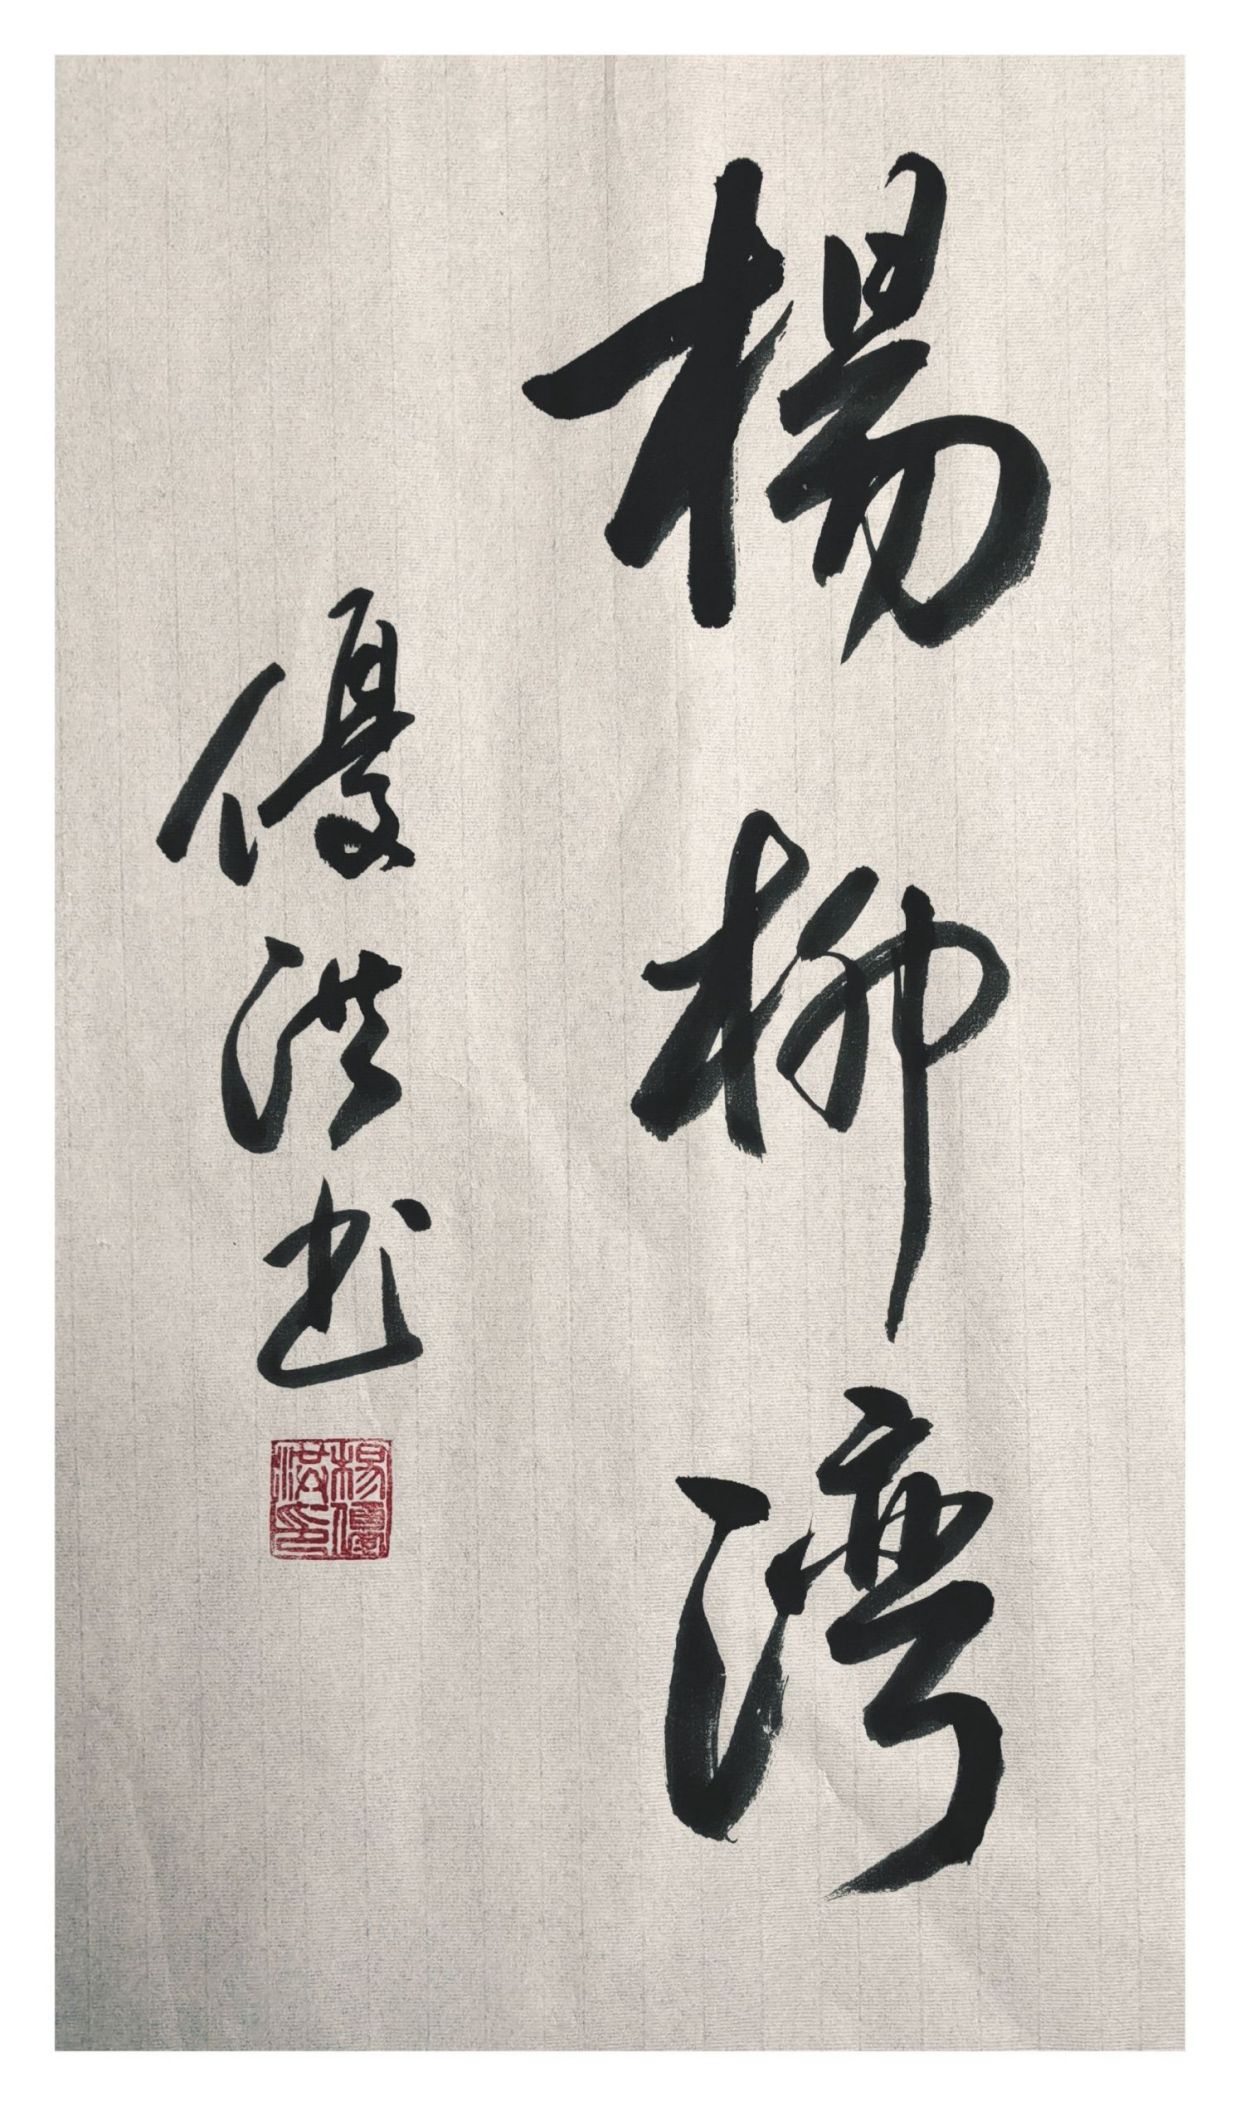 楊柳灣
優洪书
楊優
洪印